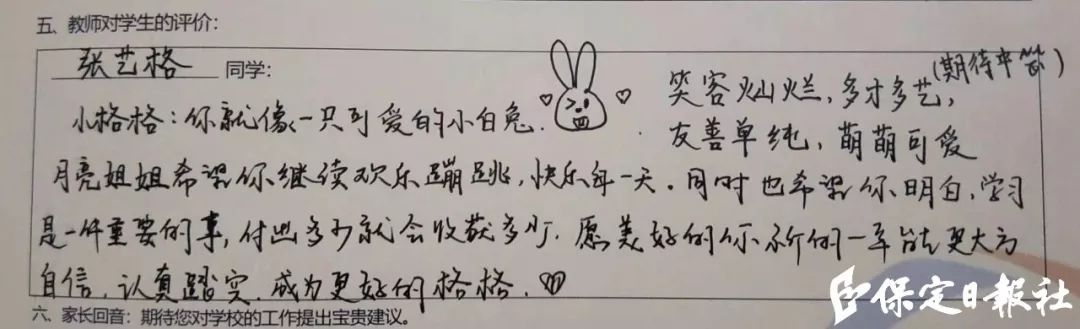 五、教师对学生的评价:
张艺格 同学:
小格格:你就像一只可爱的小白兔.
笑容灿烂,多才多艺,(期待古筝)
友善单纯,萌萌可爱
月亮姐姐希望你继续欢乐蹦跳,快乐每一天。同时也希望你明白,学习
是一件重要的事,付出多少就会收获多少.愿美好的你新的一年能更大方
自信,认真踏实.成为更好的格格.
六、家长回音:期待您对学校的工作提出宝贵建议。
保定日报社